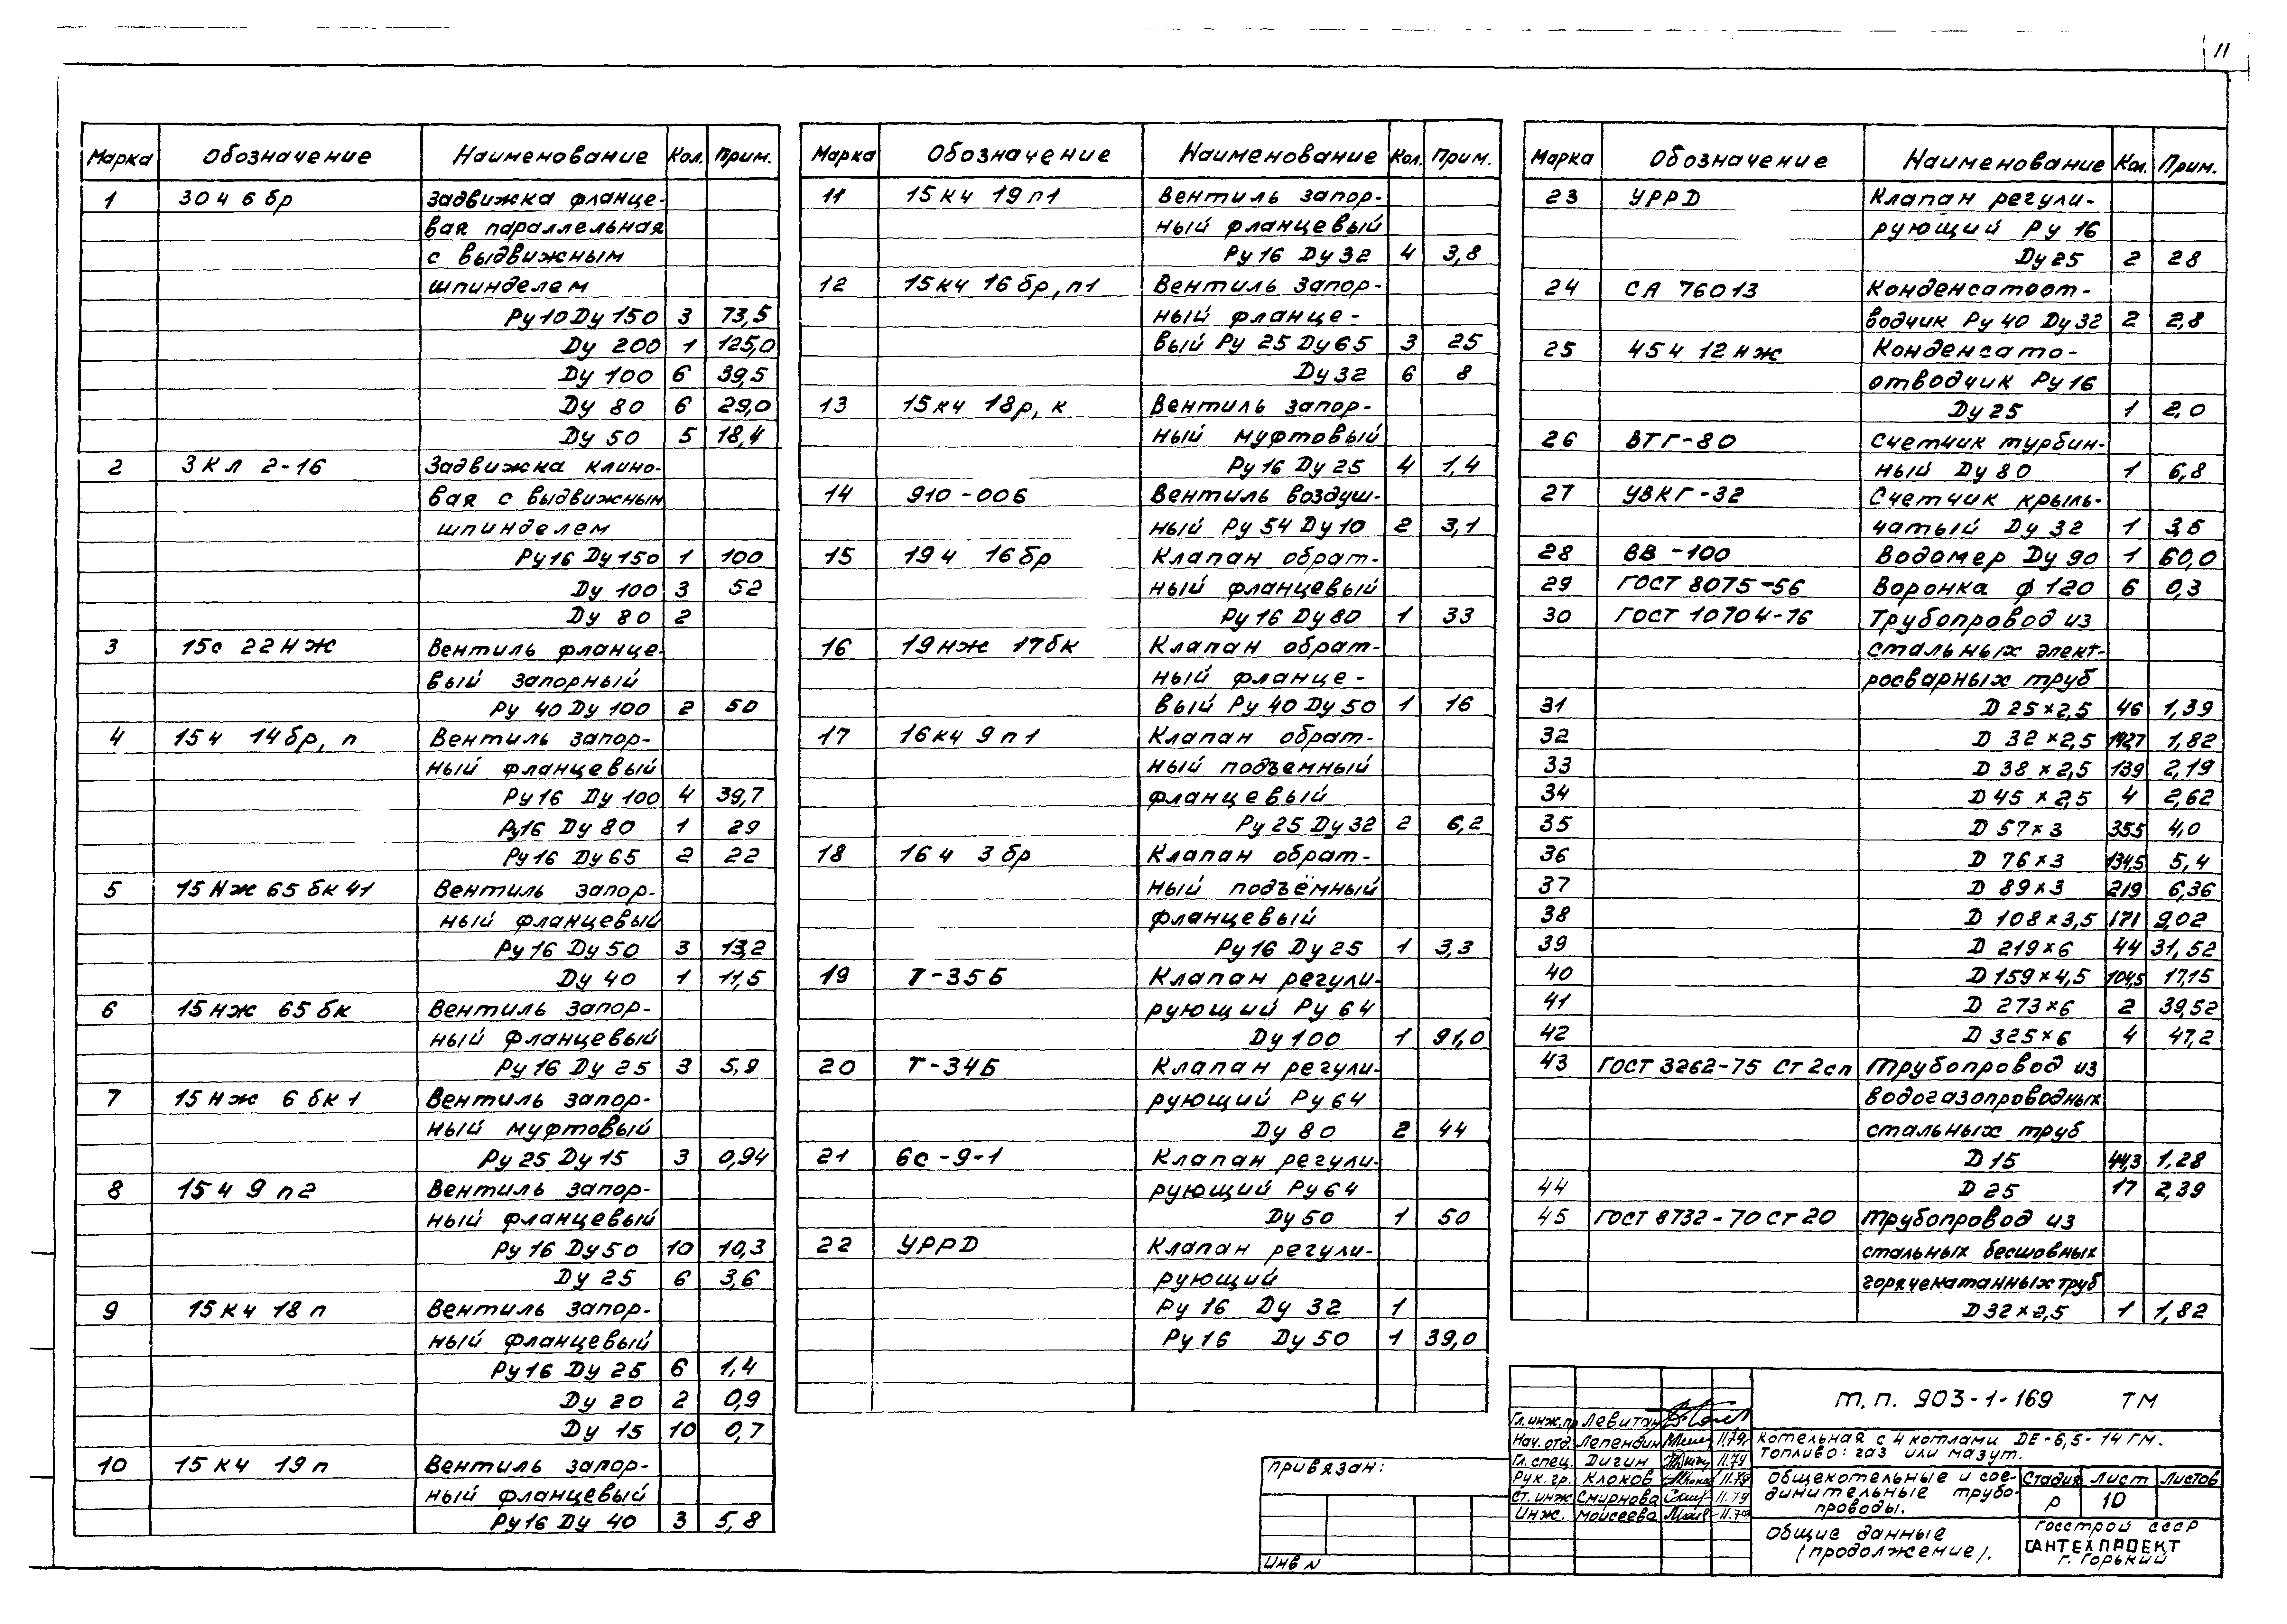 11
Марка Обозначение Наименование Кол. Прим.
1 30ч 6 бр Задвижка фланце-
вая параллельная
с выдвижным
шпинделем
Ру10 Ду 150 3 73,5
Ду 200 1 125,0
Ду 100 6 39,5
Ду 80 6 29,0
Ду 50 5 18,4
2 ЗКЛ 2-16 Задвижка клино-
вая с выдвижным
шпинделем
Ру16 Ду 150 1 100
Ду 100 3 52
Ду 80 2
3 15с 22нж Вентиль фланце-
вый запорный
Ру 40 Ду 100 2 50
4 15ч 14бр, п Вентиль запор-
ный фланцевый
Ру16 Ду 100 4 39,7
Ру16 Ду 80 1 29
Ру16 Ду 65 2 22
5 15нж 65 бк 41 Вентиль запор-
ный фланцевый
Ру16 Ду 50 3 13,2
Ду 40 1 11,5
6 15нж 65 бк Вентиль запор-
ный фланцевый
Ру 16 Ду 25 3 5,9
7 15нж 6 бк 1 Вентиль запор-
ный муфтовый
Ру 25 Ду 15 3 0,94
8 15ч 9 п2 Вентиль запор-
ный фланцевый
Ру 16 Ду 50 10 10,3
Ду 25 6 3,6
9 15кч 18 п Вентиль запор-
ный фланцевый
Ру16 Ду 25 6 1,4
Ду 20 2 0,9
Ду 15 10 0,7
10 15кч 19 п Вентиль запор-
ный фланцевый
Ру16 Ду 40 3 5,8
Марка Обозначение Наименование Кол. Прим.
11 15кч 19 п1 Вентиль запор-
ный фланцевый
Ру16 Ду 32 4 3,8
12 15кч 16 бр, п1 Вентиль запор-
ный фланце-
вый Ру 25 Ду 65 3 25
Ду 32 6 8
13 15кч 18р, к Вентиль запор-
ный муфтовый
Ру 16 Ду 25 4 1,4
14 910-006 Вентиль воздуш-
ный Ру 54 Ду 10 2 3,1
15 19ч 16 бр Клапан обрат-
ный фланцевый
Ру 16 Ду 80 1 33
16 19нж 17бк Клапан обрат-
ный фланце-
вый Ру 40 Ду 50 1 16
17 16кч 9 п1 Клапан обрат-
ный подъемный
фланцевый
Ру 25 Ду 32 2 6,2
18 16ч 3 бр Клапан обрат-
ный подъёмный
фланцевый
Ру 16 Ду 25 1 3,3
19 Т-35Б Клапан регули-
рующий Ру 64
Ду 100 1 91,0
20 Т-34Б Клапан регули-
рующий Ру 64
Ду 80 2 44
21 6с-9-1 Клапан регули-
рующий Ру 64
Ду 50 1 50
22 УРРД Клапан регули-
рующий
Ру 16 Ду 32 1
Ру 16 Ду 50 1 39,0
Марка Обозначение Наименование Кол. Прим.
23 УРРД Клапан регули-
рующий Ру 16
Ду 25 2 28
24 СА 76013 Конденсатоот-
водчик Ру 40 Ду 32 2 2,8
25 45ч 12нж Конденсато-
отводчик Ру16
Ду 25 1 2,0
26 ВТГ-80 Счетчик турбин-
ный Ду 80 1 6,8
27 УВКГ-32 Счетчик крыль-
чатый Ду 32 1 3,5
28 ВВ-100 Водомер Ду 90 1 60,0
29 ГОСТ 8075-56 Воронка ф 120 6 0,3
30 ГОСТ 10704-76 Трубопровод из
стальных элект-
росварных труб
31 D 25×2,5 46 1,39
32 D 32×2,5 1427 1,82
33 D 38×2,5 139 2,19
34 D 45×2,5 4 2,62
35 D 57×3 355 4,0
36 D 76×3 134,5 5,4
37 D 89×3 219 6,36
38 D 108×3,5 171 9,02
39 D 219×6 44 31,52
40 D 159×4,5 104,5 17,15
41 D 273×6 2 39,52
42 D 325×6 4 47,2
43 ГОСТ 3262-75 Ст 2сп Трубопровод из
водогазопроводных
стальных труб
D 15 44,3 1,28
44 D 25 17 2,39
45 ГОСТ 8732-70 Ст 20 Трубопровод из
стальных бесшовных
горячекатанных труб
D 32×2,5 1 1,82
Привязан:
Инв N
Гл. инж. пр Левитан
Нач. отд. Лепендин 11.79
Гл. спец. Дигин 11.79
Рук. гр. Клоков 11.79
Ст. инж. Смирнова 11.79
Инж. Моисеева 11.79
Т. п. 903-1-169 ТМ
Котельная с 4 котлами ДЕ-6,5-14 ГМ.
Топливо: газ или мазут.
Общекотельные и сое-
динительные трубо-
проводы.
Стадия Лист Листов
Р 10
Общие данные
(продолжение).
Госстрой СССР
САНТЕХПРОЕКТ
г. Горький